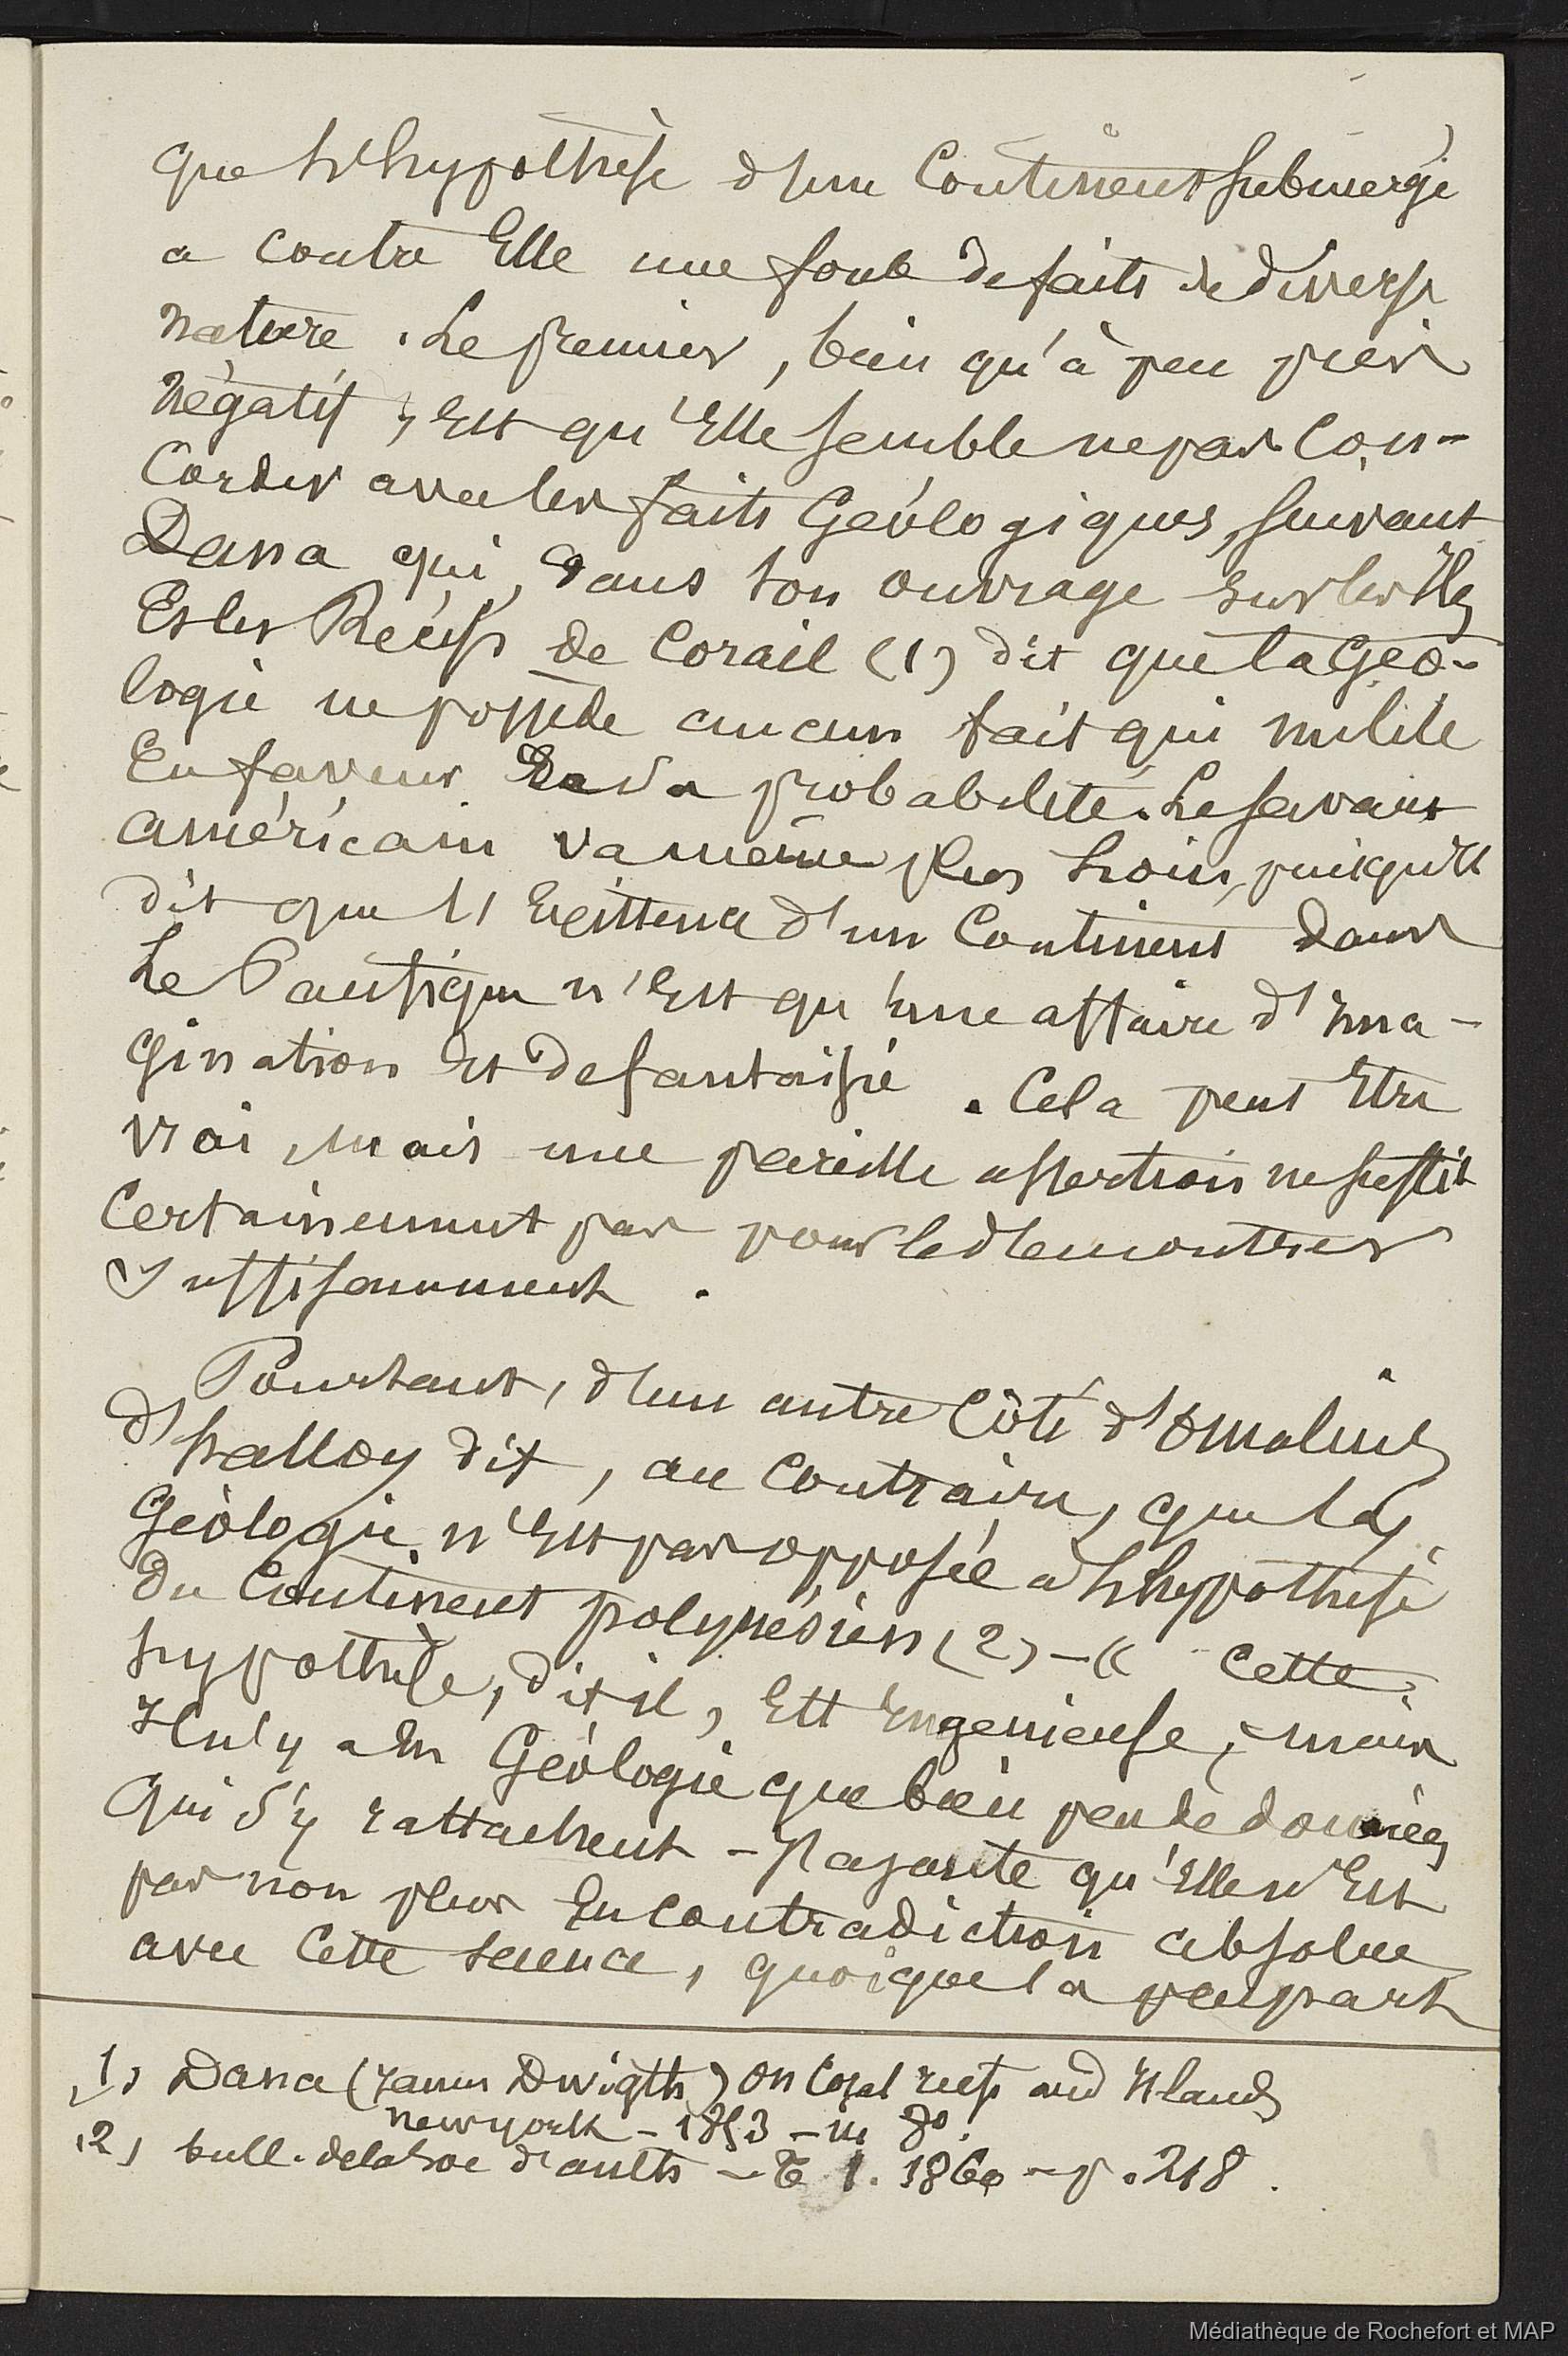 que l'hypothèse d'un Continent submergé
a contre Elle une foule de faits de diverse
nature. Le premier, bien qu'à peu près
négatif, Est qu'Elle semble ne pas Con-
Corder avec les faits Géologiques, suivant
Dana qui, dans son ouvrage sur les Iles
Et les Récifs de Corail (1) dit que la Géo-
logie ne possède aucun fait qui milite
En faveur De sa probabilité. Le savant
américain va même plus loin, puisqu'il
dit que l'Existence d'un Continent dans
Le Pacifique n'Est qu'une affaire d'ima-
gination Et de fantaisie. Cela peut Etre
vrai, mais une pareille assertion ne suffit
Certainement pas pour le démontrer
suffisamment.
Pourtant, d'un autre Côté d'Omalius
d'halloy dit, au Contraire, que la
Géologie n'Est pas opposée à l'hypothèse
du Continent polynésien (2) - « Cette
hypothèse, dit il, Est Ingénieuse, mais
Il n'y a En Géologie que bien peu de données
qui s'y rattachent - J'ajoute qu'Elle n'Est
pas non plus En Contradiction absolue
avec Cette science, quoique la plupart
(1) Dana (James Dwigth) On Coral reefs and Islands
new york - 1853 - in 8º.
(2) bull. de la Soc d'anth - T 1. 1860 - p. 218.
Médiathèque de Rochefort et MAP